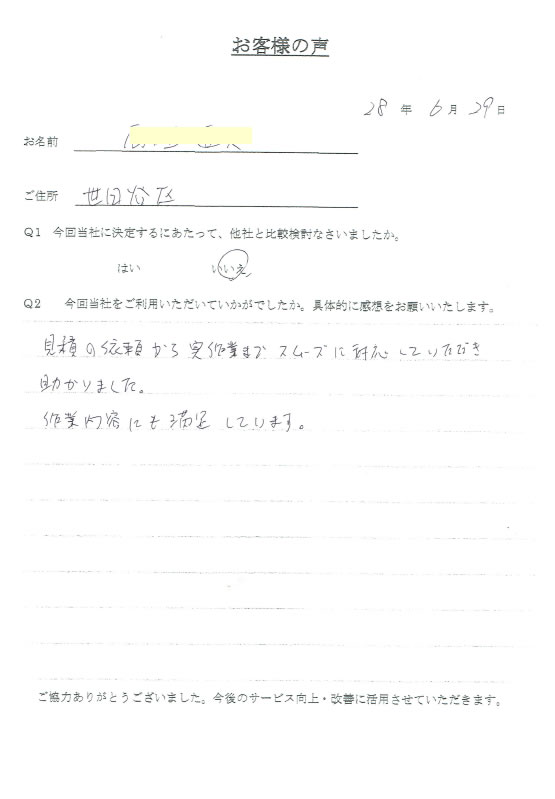 お客様の声
28 年 6 月 29 日
お名前
ご住所 世田谷区
Q1 今回当社に決定するにあたって、他社と比較検討なさいましたか。
はい いいえ
Q2 今回当社をご利用いただいていかがでしたか。具体的に感想をお願いいたします。
見積の依頼から実作業まで スムーズに対応していただき
助かりました。
作業内容にも満足しています。
ご協力ありがとうございました。今後のサービス向上・改善に活用させていただきます。